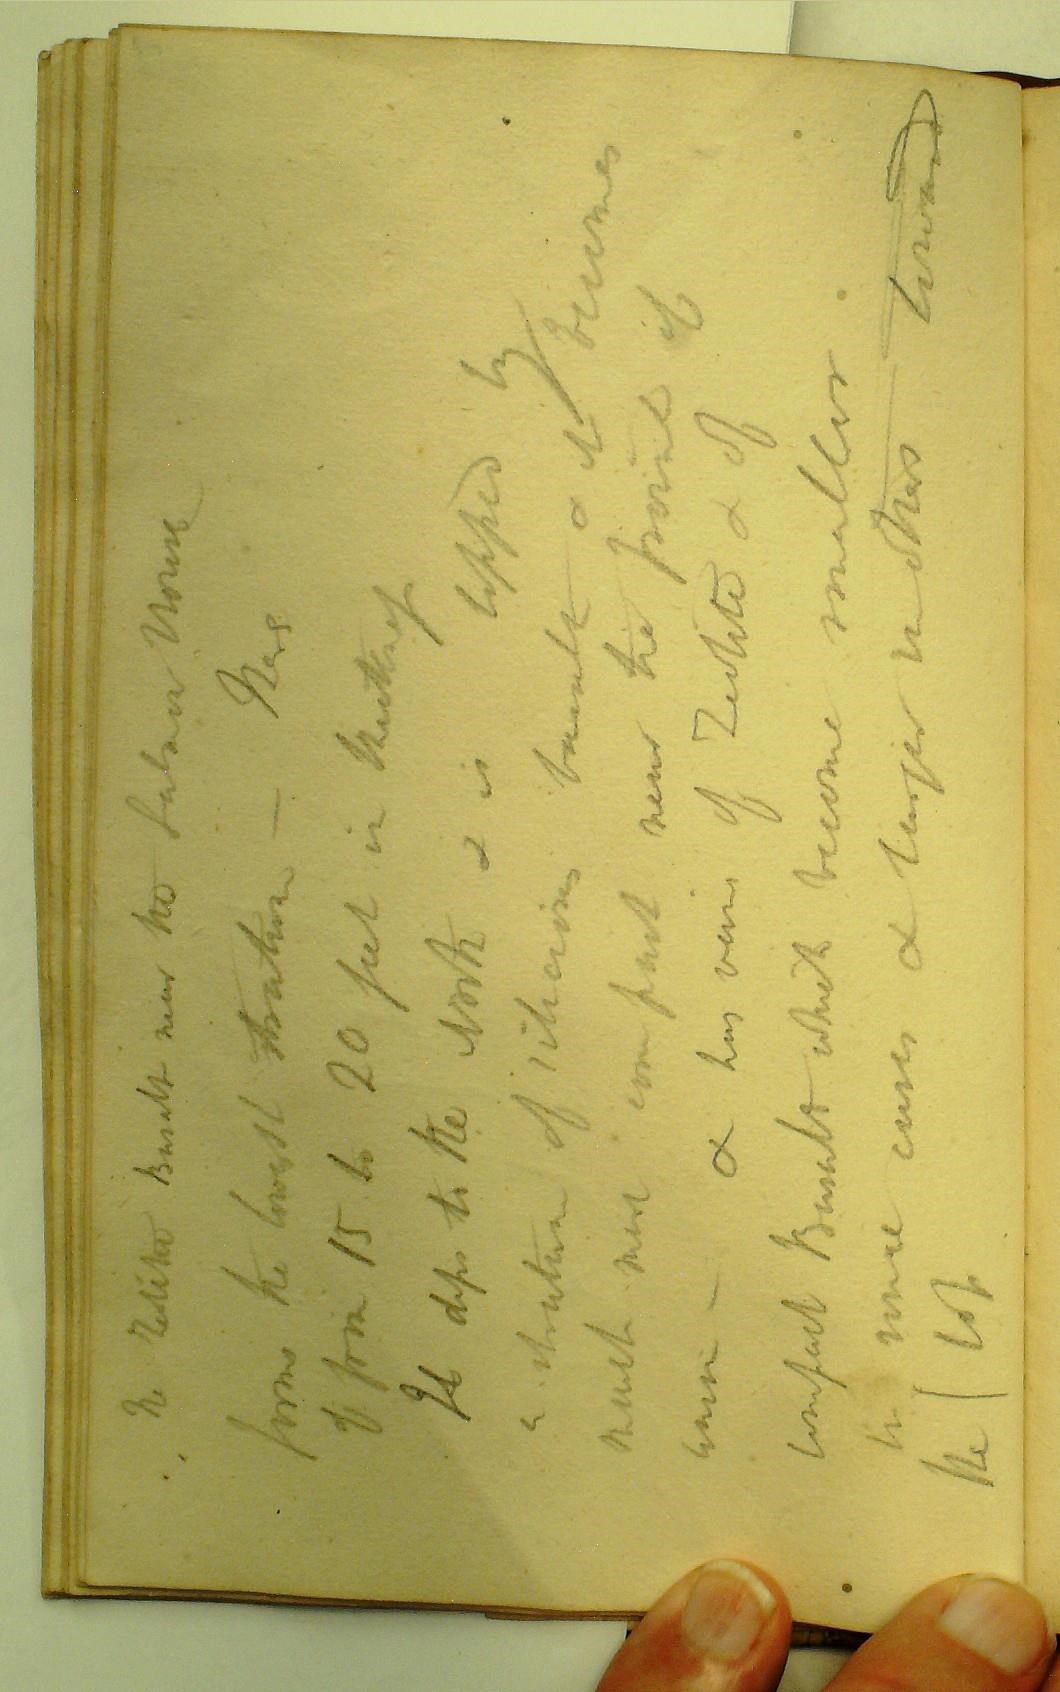 The Zeolitic Basalt near the Salmon House
forms the lowest stratum —
of from 15 to 20 feet in thickness
It dips to the North & is topped by
a stratum of siliceous basalt & it becomes
much more compact near the point of
— & has veins of Zeolite & of
compact Basalt which become smaller
in some cases & larger in others toward
the top